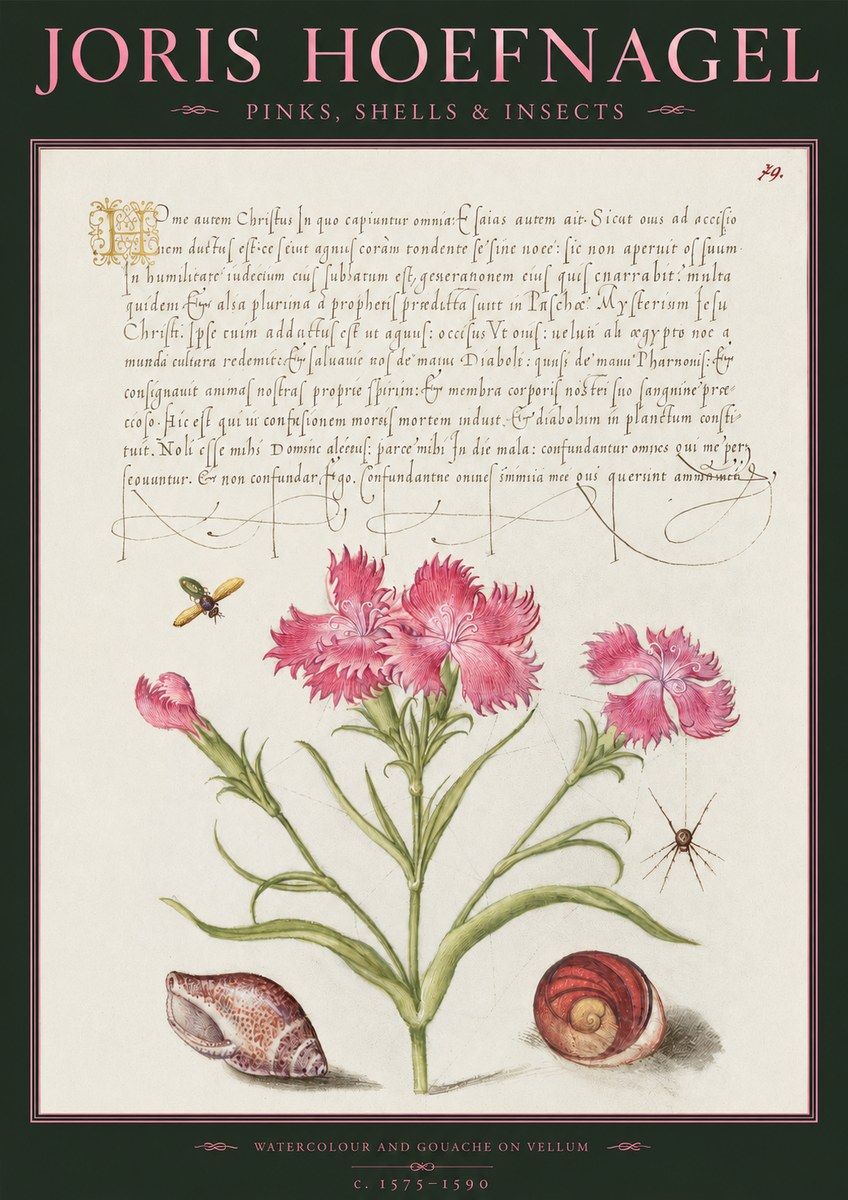 JORIS HOEFNAGEL
PINKS, SHELLS & INSECTS
79.
Home autem Christus In quo capiuntur omnia: Esaias autem ait. Sicut ouis ad accisio
nem ductus est ce sicut agnus coram tondente se sine noce: sic non aperuit os suum
In humilitate iudecium eius est, geseranonem eius quis cnarrabit? multa
quidem & alsa plurima a prophetis præditta sunt in Pascha. Mysterium Jesu
Christi. Ipse enim adductus est ut aguus: occisus Vt ouis: ueluti ab ægypto noe a
munda cultara redemit & saluauit nos de manu Diaboli: quasi de manu Pharaonis: &
consignauit animas nostras proprie spiritn: & membra corporis nostri suo sanguine præ-
cioso. Hic est qui ui confusionem morsis mortem indust. & diabolum in planctum consti-
tuit. Noli esse mihi Domine parce mihi In die mala: confundantur omnes qui me per
seouuntur. & non confundar Ego. Confundantue mee ous quersint
WATERCOLOUR AND GOUACHE ON VELLUM
c. 1575–1590